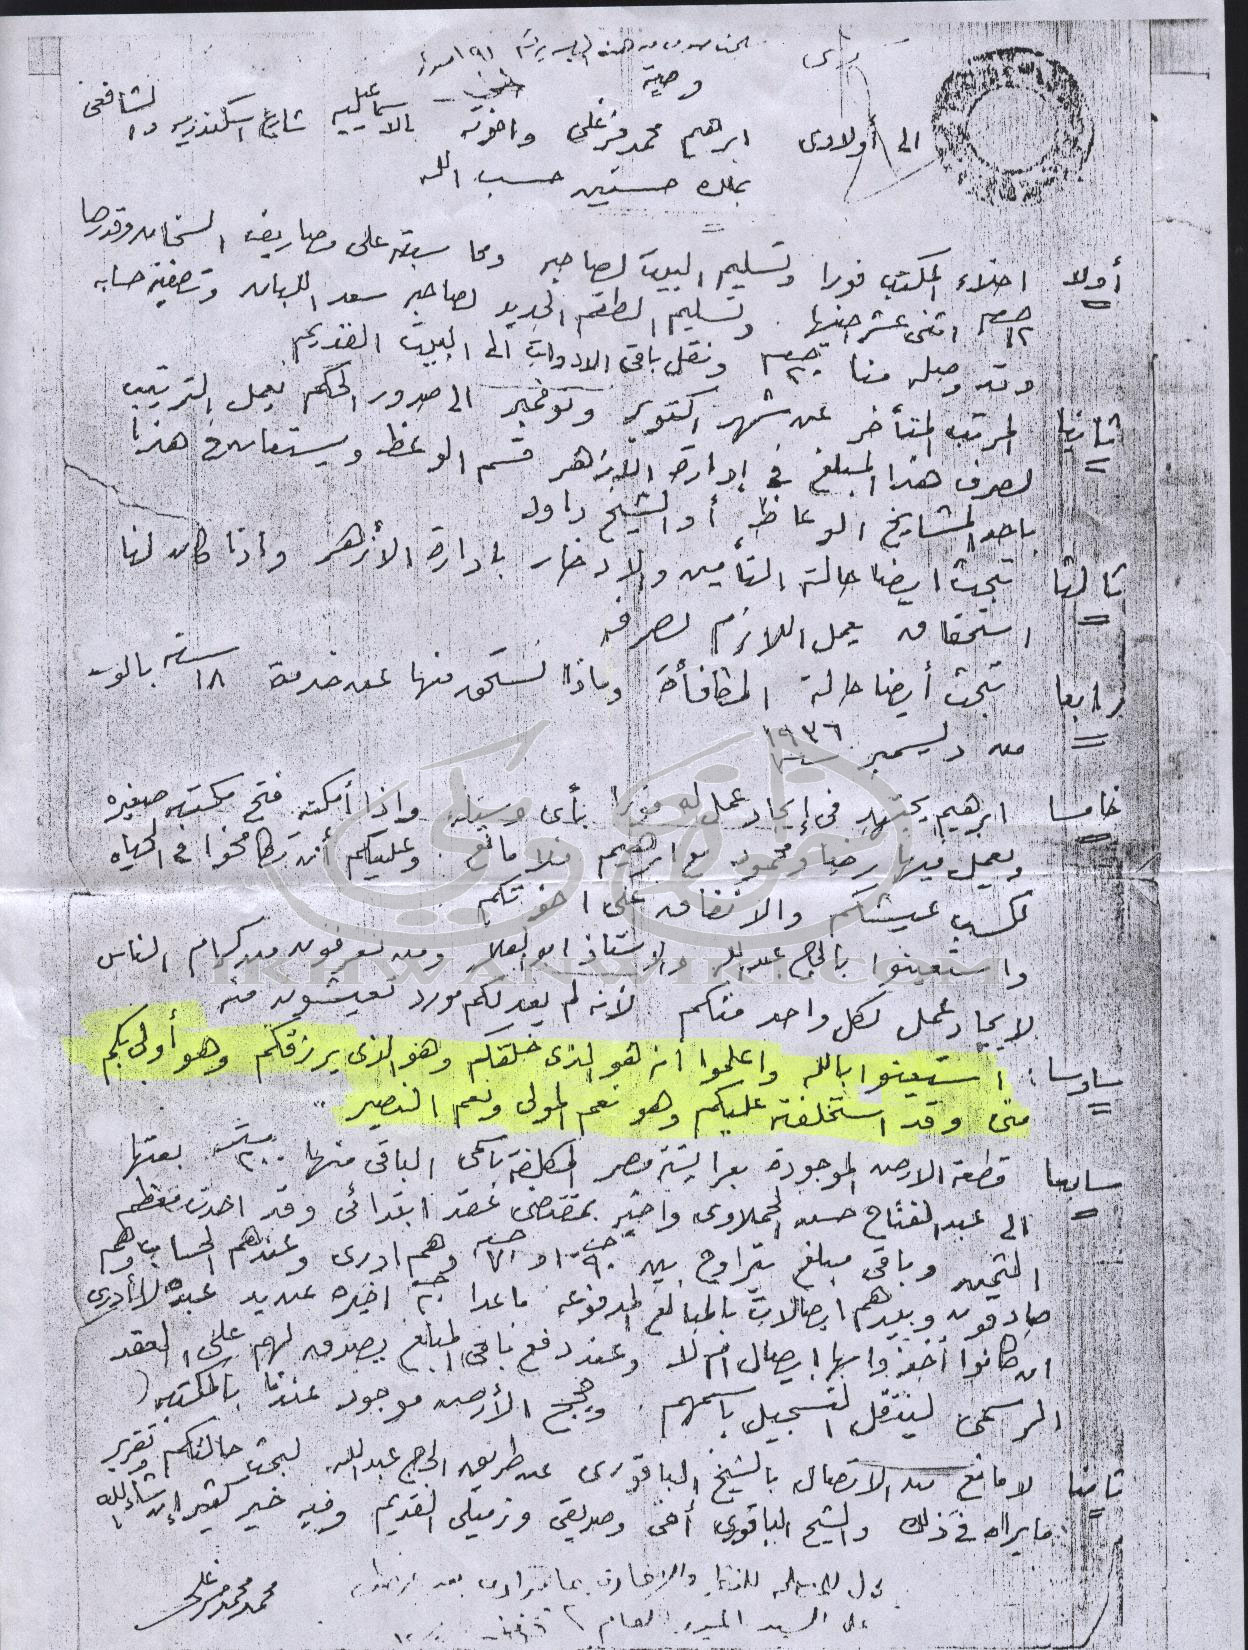 وصية
الى أولادى ابرهيم محمد فرغلى واخوته بالاسماعيليه شارع اسكندريه والشافعى
بملك حسنين حسب الله
أولا اخلاء المكتب فورا وتسليم البيت لصاحبه ومحاسبته على مصاريف السخان وقدرها
١٢ جنيه اثنى عشر جنيها وتسليم الطقم الجديد لصاحبه سعد اللبان وتصفية حسابه
وقد وصله منا ٢٠ جنيه ونقل باقى الادوات الى البيت القديم
ثانيا المرتب المتأخر عن شهر اكتوبر ونوفمبر الى صدور الحكم يعمل الترتيب
لصرف هذا المبلغ فى إدارة الازهر قسم الوعظ ويستعان فى هذا
باحد المشايخ الوعاظ أو الشيخ داود
ثالثا تبحث ايضا حالة التأمين والادخار بادارة الأزهر واذا كان لنا
استحقاق يعمل اللازم لصرفه
رابعا تبحث أيضا حالة المكافأة وماذا نستحق منها عن خدمة ١٨ سنة بالوعظ
من ديسمبر سنة ١٩٣٦
خامسا ابرهيم يجتهد فى إيجاد عمل له فورا بأى وسيلة واذا أمكنه فتح مكتبه صغيره
ويعمل فيها رضا ومحمود مع ابرهيم فلا مانع وعليكم أن تكافحوا فى الحياه
لكسب عيشكم والانفاق على اخوتكم
واستعينوا بالحاج عبدالله والاستاذ ابو العلا ومن تعرفون من كرام الناس
لايجاد عمل لكل واحد منكم لأنه لم يعد لكم مورد تعيشون منه
سادسا : استعينوا بالله واعلموا أنه هو الذى خلقكم وهو الذى يرزقكم وهو أولى بكم
منى وقد استخلفته عليكم وهو نعم المولى ونعم النصير
سابعا قطعة الارض الموجودة بعرايشة مصر المكلفة باسمى الباقى منها بعتها
الى عبد الفتاح حسن الحملاوى واخيه بمقتضى عقد ابتدائى وقد اخذت معظم
الثمن وباقى مبلغ يتراوح بين ٩٠ جنيه او ١٠٠ جنيه وهم ادرى وعندهم الحساب وهم
صادقون وبيدهم ايصالات بالمبالغ المدفوعه ماعدا اخيره عن يد عبده لا أدرى
ان كانوا أخذوا بها ايصال ام لا وعند دفع باقى المبلغ يصدق لهم على العقد
الرسمى لينقل التسجيل باسمهم وحجج الأرض موجود عندنا بالمكتبه
ثامنا لا مانع من الاتصال بالشيخ الباقورى عن طريق الحاج عبدالله لبحث حالتكم وتقرير
ما يراه فى ذلك والشيخ الباقورى أخى وصديقى وزميلى القديم وفيه خير كثير إن شاء الله
محمد محمد فرغلى
IKHWANWIKI.COM